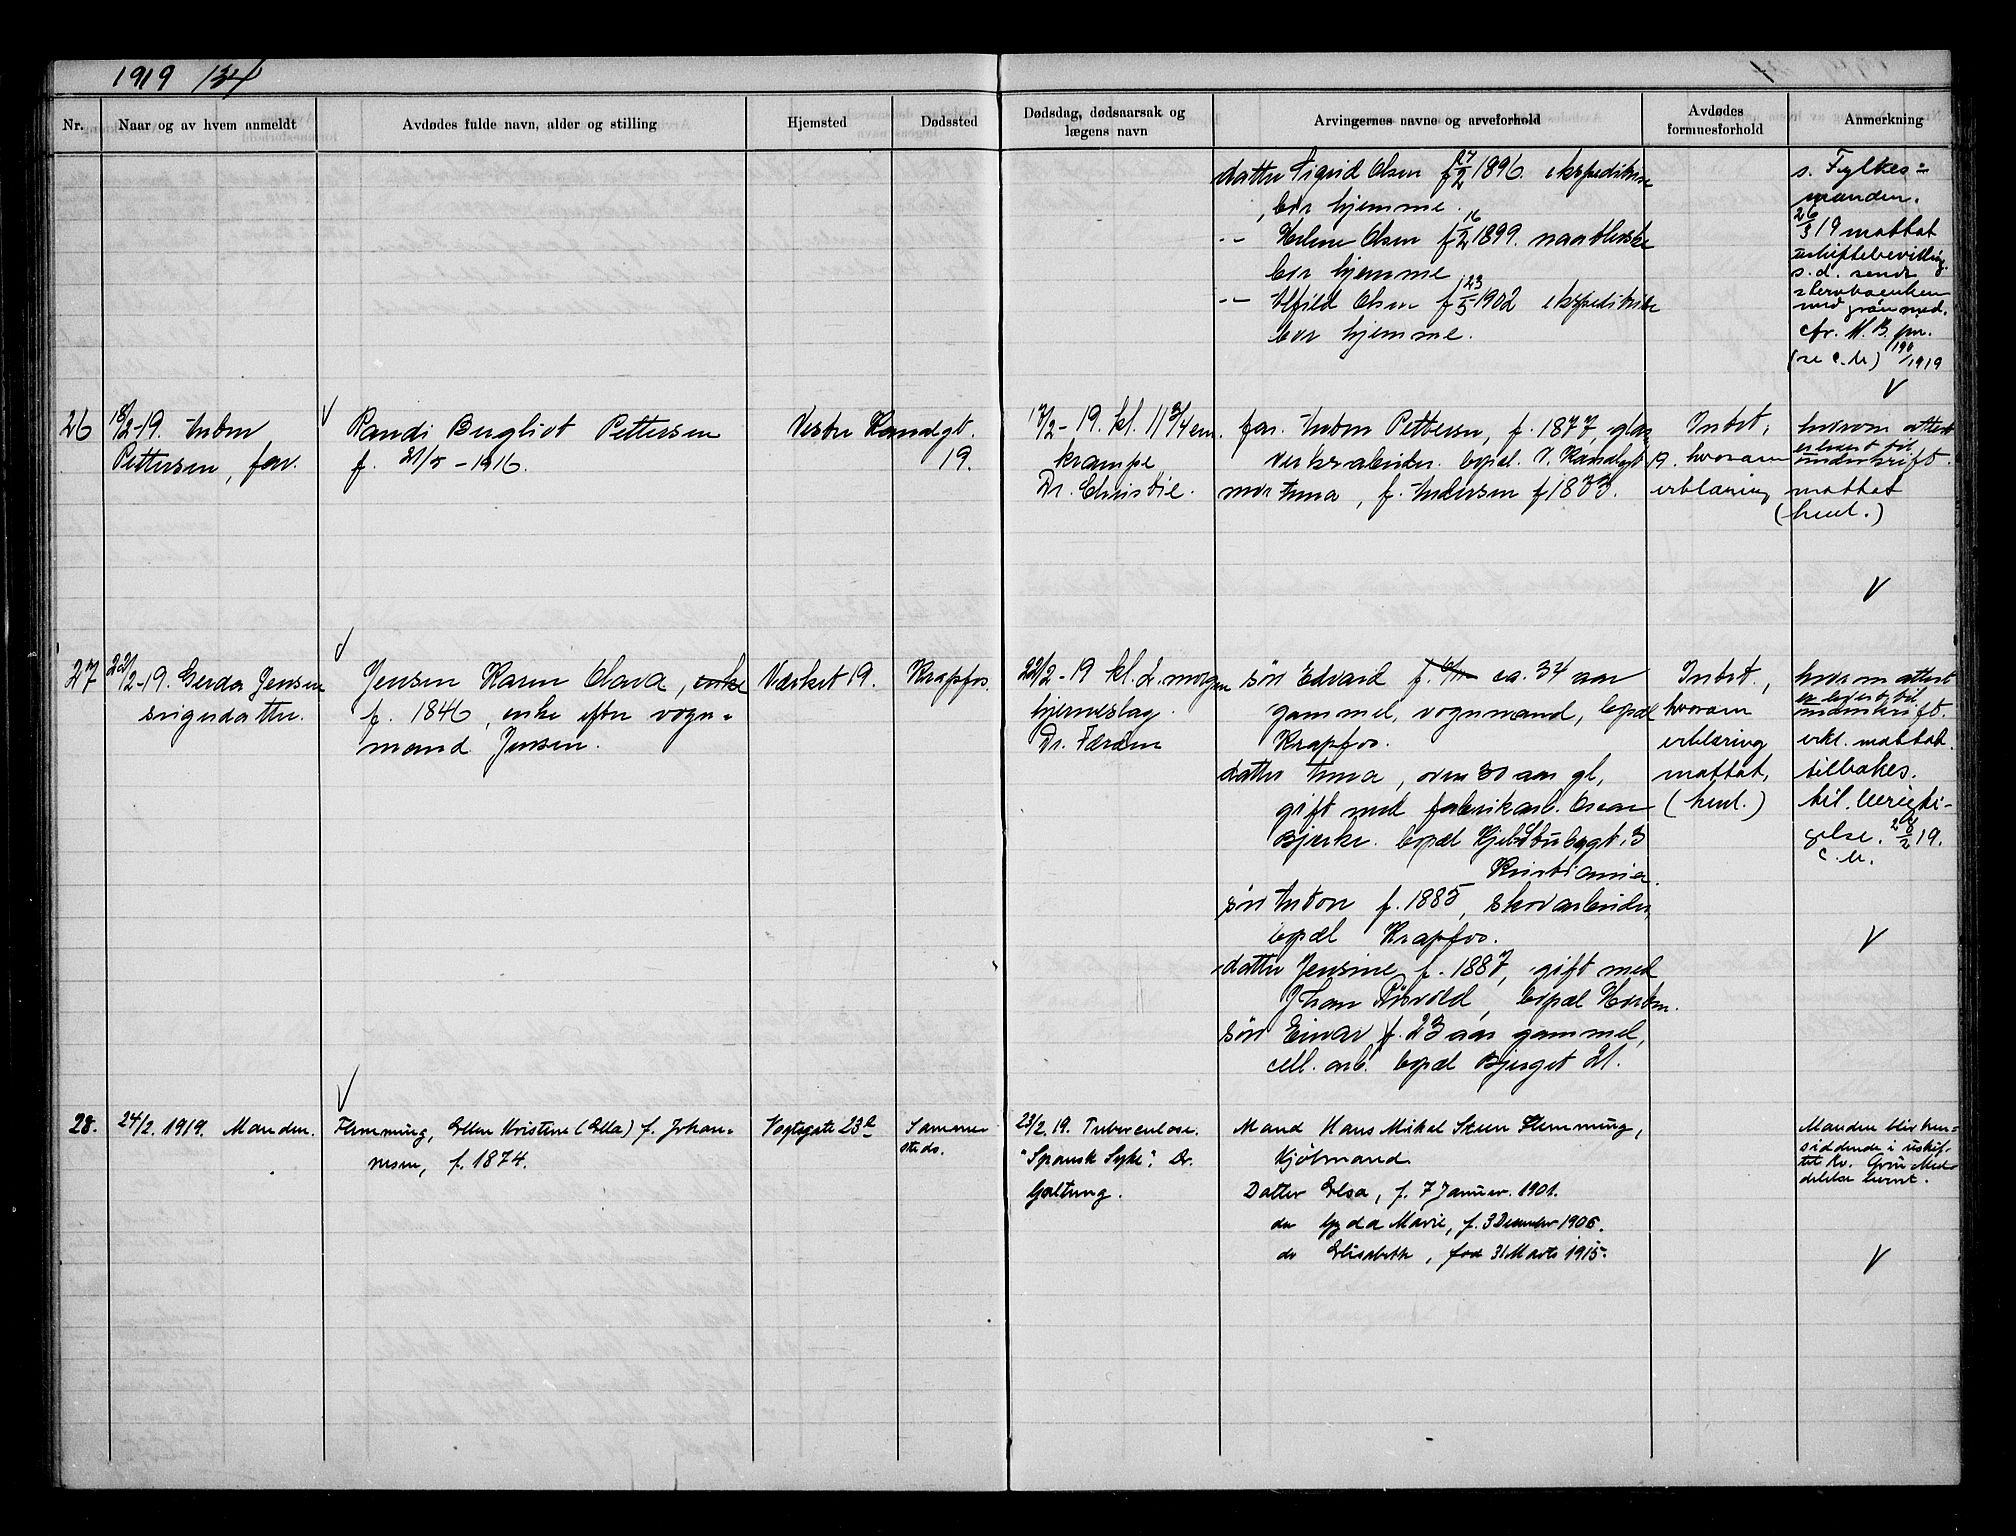 1919 134
Nr.
Naar og av hvem anmeldt
Avdødes fulde navn, alder og stilling
Hjemsted
Dødssted
Dødsdag, dødsaarsak og
lægens navn
Arvingernes navne og arveforhold
Avdødes
formuesforhold
Anmerkning
datter Sigrid Olsen f 27/2 1896. ekspeditrise
bor hjemme.
-"- Helene Olsen f 16/2 1899.
bor hjemme
-"- Alfild Olsen f 23/5 1902 ekspeditrise
bor hjemme.
s. Fylkes=
manden.
26/3 19 mottat
uskiftebevilling.
s.d. sendt
skrivbænken
med grøn med.
cfr. M.B. pn.
190/1919
26
18/2-19. Anton
Pettersen, far.
Randi Bergliot Pettersen
f. 21/5-1916.
Vestre Kanalgt.
19.
17/2-19. kl. 11 3/4 em.
krampe
Dr. Christie.
far. Anton Pettersen, f. 1877, glas-
verksarbeider. bopæl. V. Kanalgt 19.
mor Anna, f. Andersen f 1873.
Intet,
hvoram
erklæring
hvorom attest
er levert til
underskrift.
mottat
27
22/2-19. Gerda Jensen
svigerdatter.
Jensen Karen Olava, enke
f. 1846, enke efter vogn=
mand Jensen.
Værket 19.
Krapfos.
22/2-19 kl. 2. morgen
hjerneslag.
Dr. Færden
søn Edvard f. ca. 34 aar
gammel, vognmand, bopæl
Krapfos.
datter Anna, over 30 aar gl,
gift med fabrikarb. Oscar
Bjerke. bopæl Kjeldstubgt. 3
Kristiania.
søn Anton f. 1885, skovarbeider,
bopæl Krapfos.
datter Jensine f. 1887, gift med
Johan Risvold, bopæl Horten.
søn Einar f. 23 aar gammel,
cell. arb. bopæl Bjerget 21.
Intet,
hvoram
erklæring
mottat,
hvorom attest
er levert til
underskrift.
erkl. mottat.
tilbakes.
til berigti-
gelse. 26/2 19.
28.
24/2. 1919. Manden.
Flemming, Ellen Kristine (Ella) f. Johan=
nesen, f. 1874.
Vogtsgate 23b
Samme-
steds.
23/2. 19. Tuberculose.
"Spansk Syke". Dr.
Galtung.
Mand Hans Mikal Steen Flemming,
Kjøbmand
Datter Elsa, f. 7 Januar. 1901.
do Gyda Marie, f. 3 December 1906.
do Elisabeth, fød 31 Marts 1915.
Manden blir hen=
siddende i uskif-
tet Bo. Grøn Med-
delelse levert.